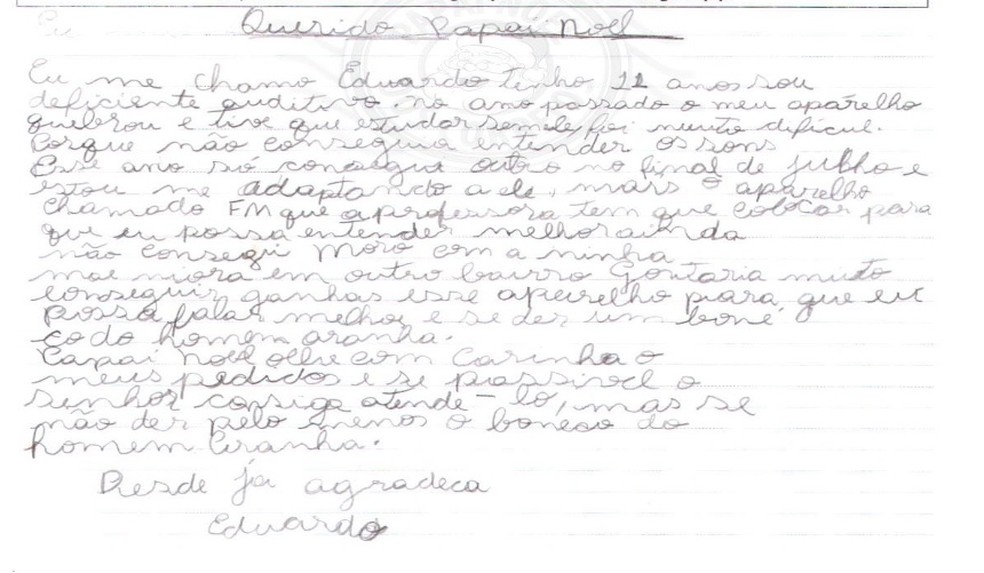 Querido Papai Noel
Eu me chamo Eduardo tenho 11 anos sou
deficiente auditivo. no amo passado o meu aparelho
quebrou e tive que estudar sem ele, foi muito dificul.
Porque não conseguia entender os sons
Esse ano só consegui outro no final de julho e
estou me adaptando a ele, mais o aparelho
chamado FM que a professora tem que colocar para
que eu possa entender melhor ainda
não consegi moro com a minha
mae niora em outro bairro Gontaria muito
conseguir ganhas esse aparelho para, que eu
possa falar melhor e se der um bone
co do homem aranha.
Papai Noel olhe com carinho o
meus pedidos e se possivel o
senhor consiga atende-lo, mas se
não der pelo menos o boneco do
homem aranha.
Desde já agradeca
Eduardo